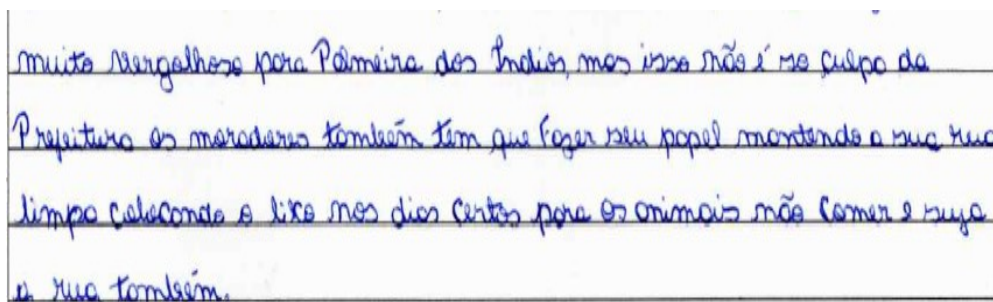 muito vergolhoso para Palmeira dos Indios, mas isso não é so culpa da
Prefeitura os moradores também tem que fazer seu papel mantendo a sua rua
limpa colocando o lixo nos dias certos para os animais não comer e suja
a rua também.